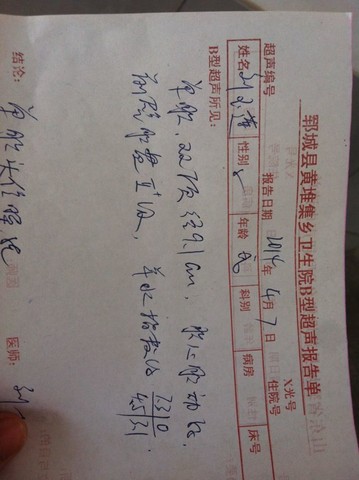 郓城县黄堆集乡卫生院B型超声报告单
X光号
超声编号 报告日期 2014年4月7日 住院号
姓名 性别 年龄 科别 病房 床号
B型超声所见:
单胎,双顶径9.1cm,胎心胎动好,
前壁胎盘II+级,羊水指数约 23|0 45|31
结论:
单胎头位晚孕
医师: